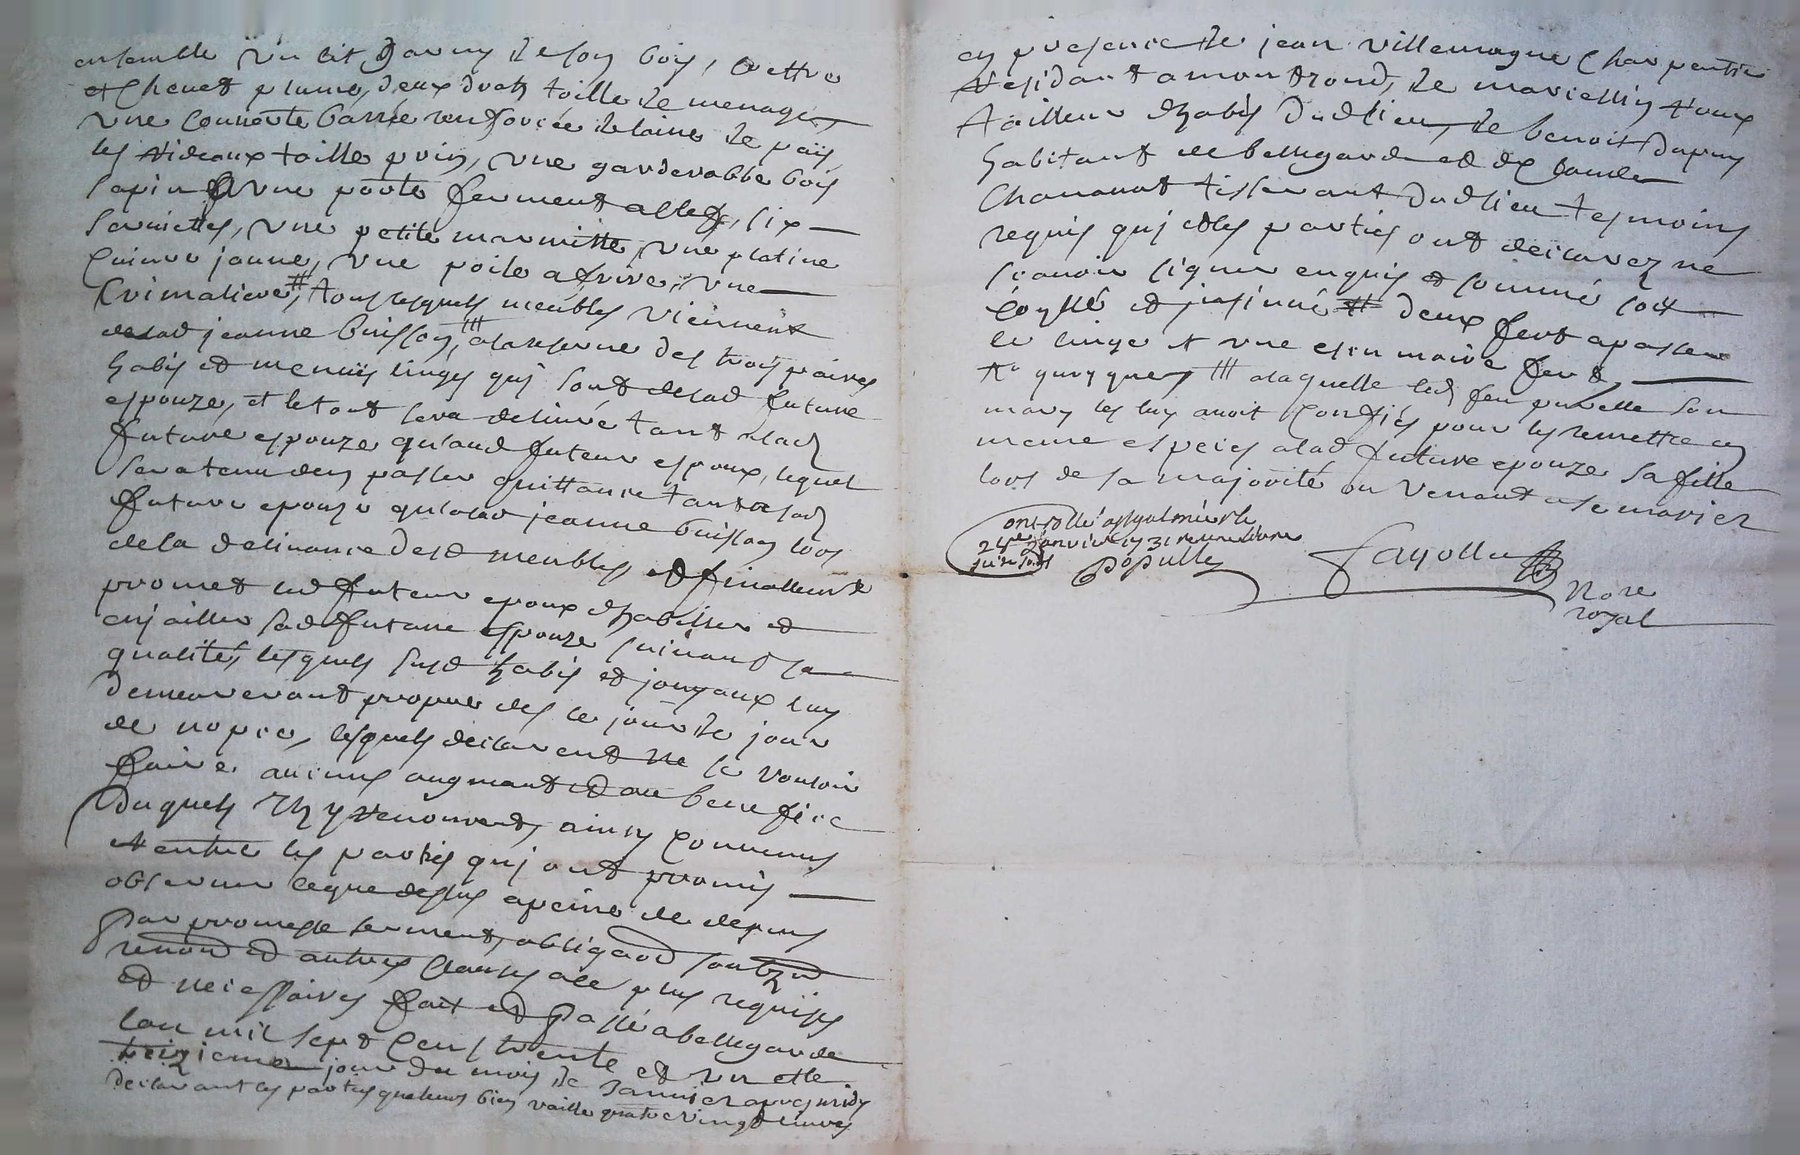 ensemble un lit garny de son bois, couettre
et chevet plume, deux draps toille de menage,
une couverte barrée renforcée de laine de païs,
les rideaux toille prin, une garderobbe bois
sapin a une porte fermant a clef, six
serviettes, une petite marmitte, une platine
cuivre jaune, une poile a frire, une
crimaliere, # tous lesquels meubles viennent
de lad jeanne buisson, ||| a la reserve des trois paires
habis et menus linges qui sont de lad future
espouze, et le tout sera delivré tant a lad
future espouze qu'aud futeur espoux, lequel
sera tenu den passer quittance tant a lad
future epouze qu'a lad jeanne buisson lors
de la delivrance desd meubles, et finallemt
promet led futeur epoux d'habiller et
enjailler sad future espouze suivant sa
qualité, lesquels susd habis et joyaux luy
demeureront propres des ce jour le jour
de nopce, lesquels declarent ne se vouloir
faire aucuns augmant et au benefice
duquels ils y renoncent, ainsy convenus
entre les parties qui ont promis
observer ce que dessus a peine de depens
par promesse serment, obligaon soubzn
renonon et autres clauses a ce plus requises
et necessaires fait et passé a bellegarde
lan mil sept cens trente et un et le
treizieme jour du mois de janvier apres midy
declarant les parties que leurs biens vaille quatrevingt livres
en presence de jean villemagne charpentier
residant a montrond, de marcellin roux
tailleur d'habis dud lieu, de benoist dupuy
habitant de bellegarde et de claude
chavanat tisserant dud lieu tesmoins
requis qui et les parties ont declarez ne
scavoir signer enquis et sommé soit
coyllé et insinué # deux fert a passer
le linge et une escumoire fert,
||| a laquelle led feu son
mary les luy avoit confiés pour les remettre en
meme espeices a lad future epouze sa fille
lors de sa majorité ou venant a se marier
controllé a st galmier le
24e janvier 1731 receu
Populle
Fayolle
Nore
royal